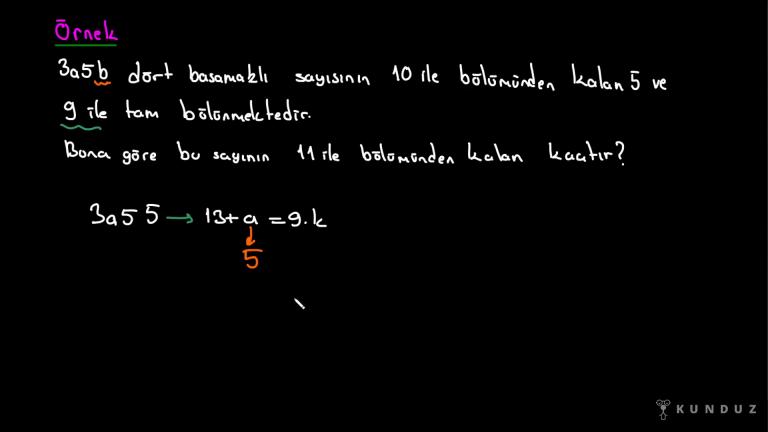 Örnek
3a5b dört basamaklı sayısının 10 ile bölümünden kalan 5 ve
9 ile tam bölünmektedir.
Buna göre bu sayının 11 ile bölümünden kalan kaçtır?
3a55 → 13+a = 9.k
5
KUNDUZ